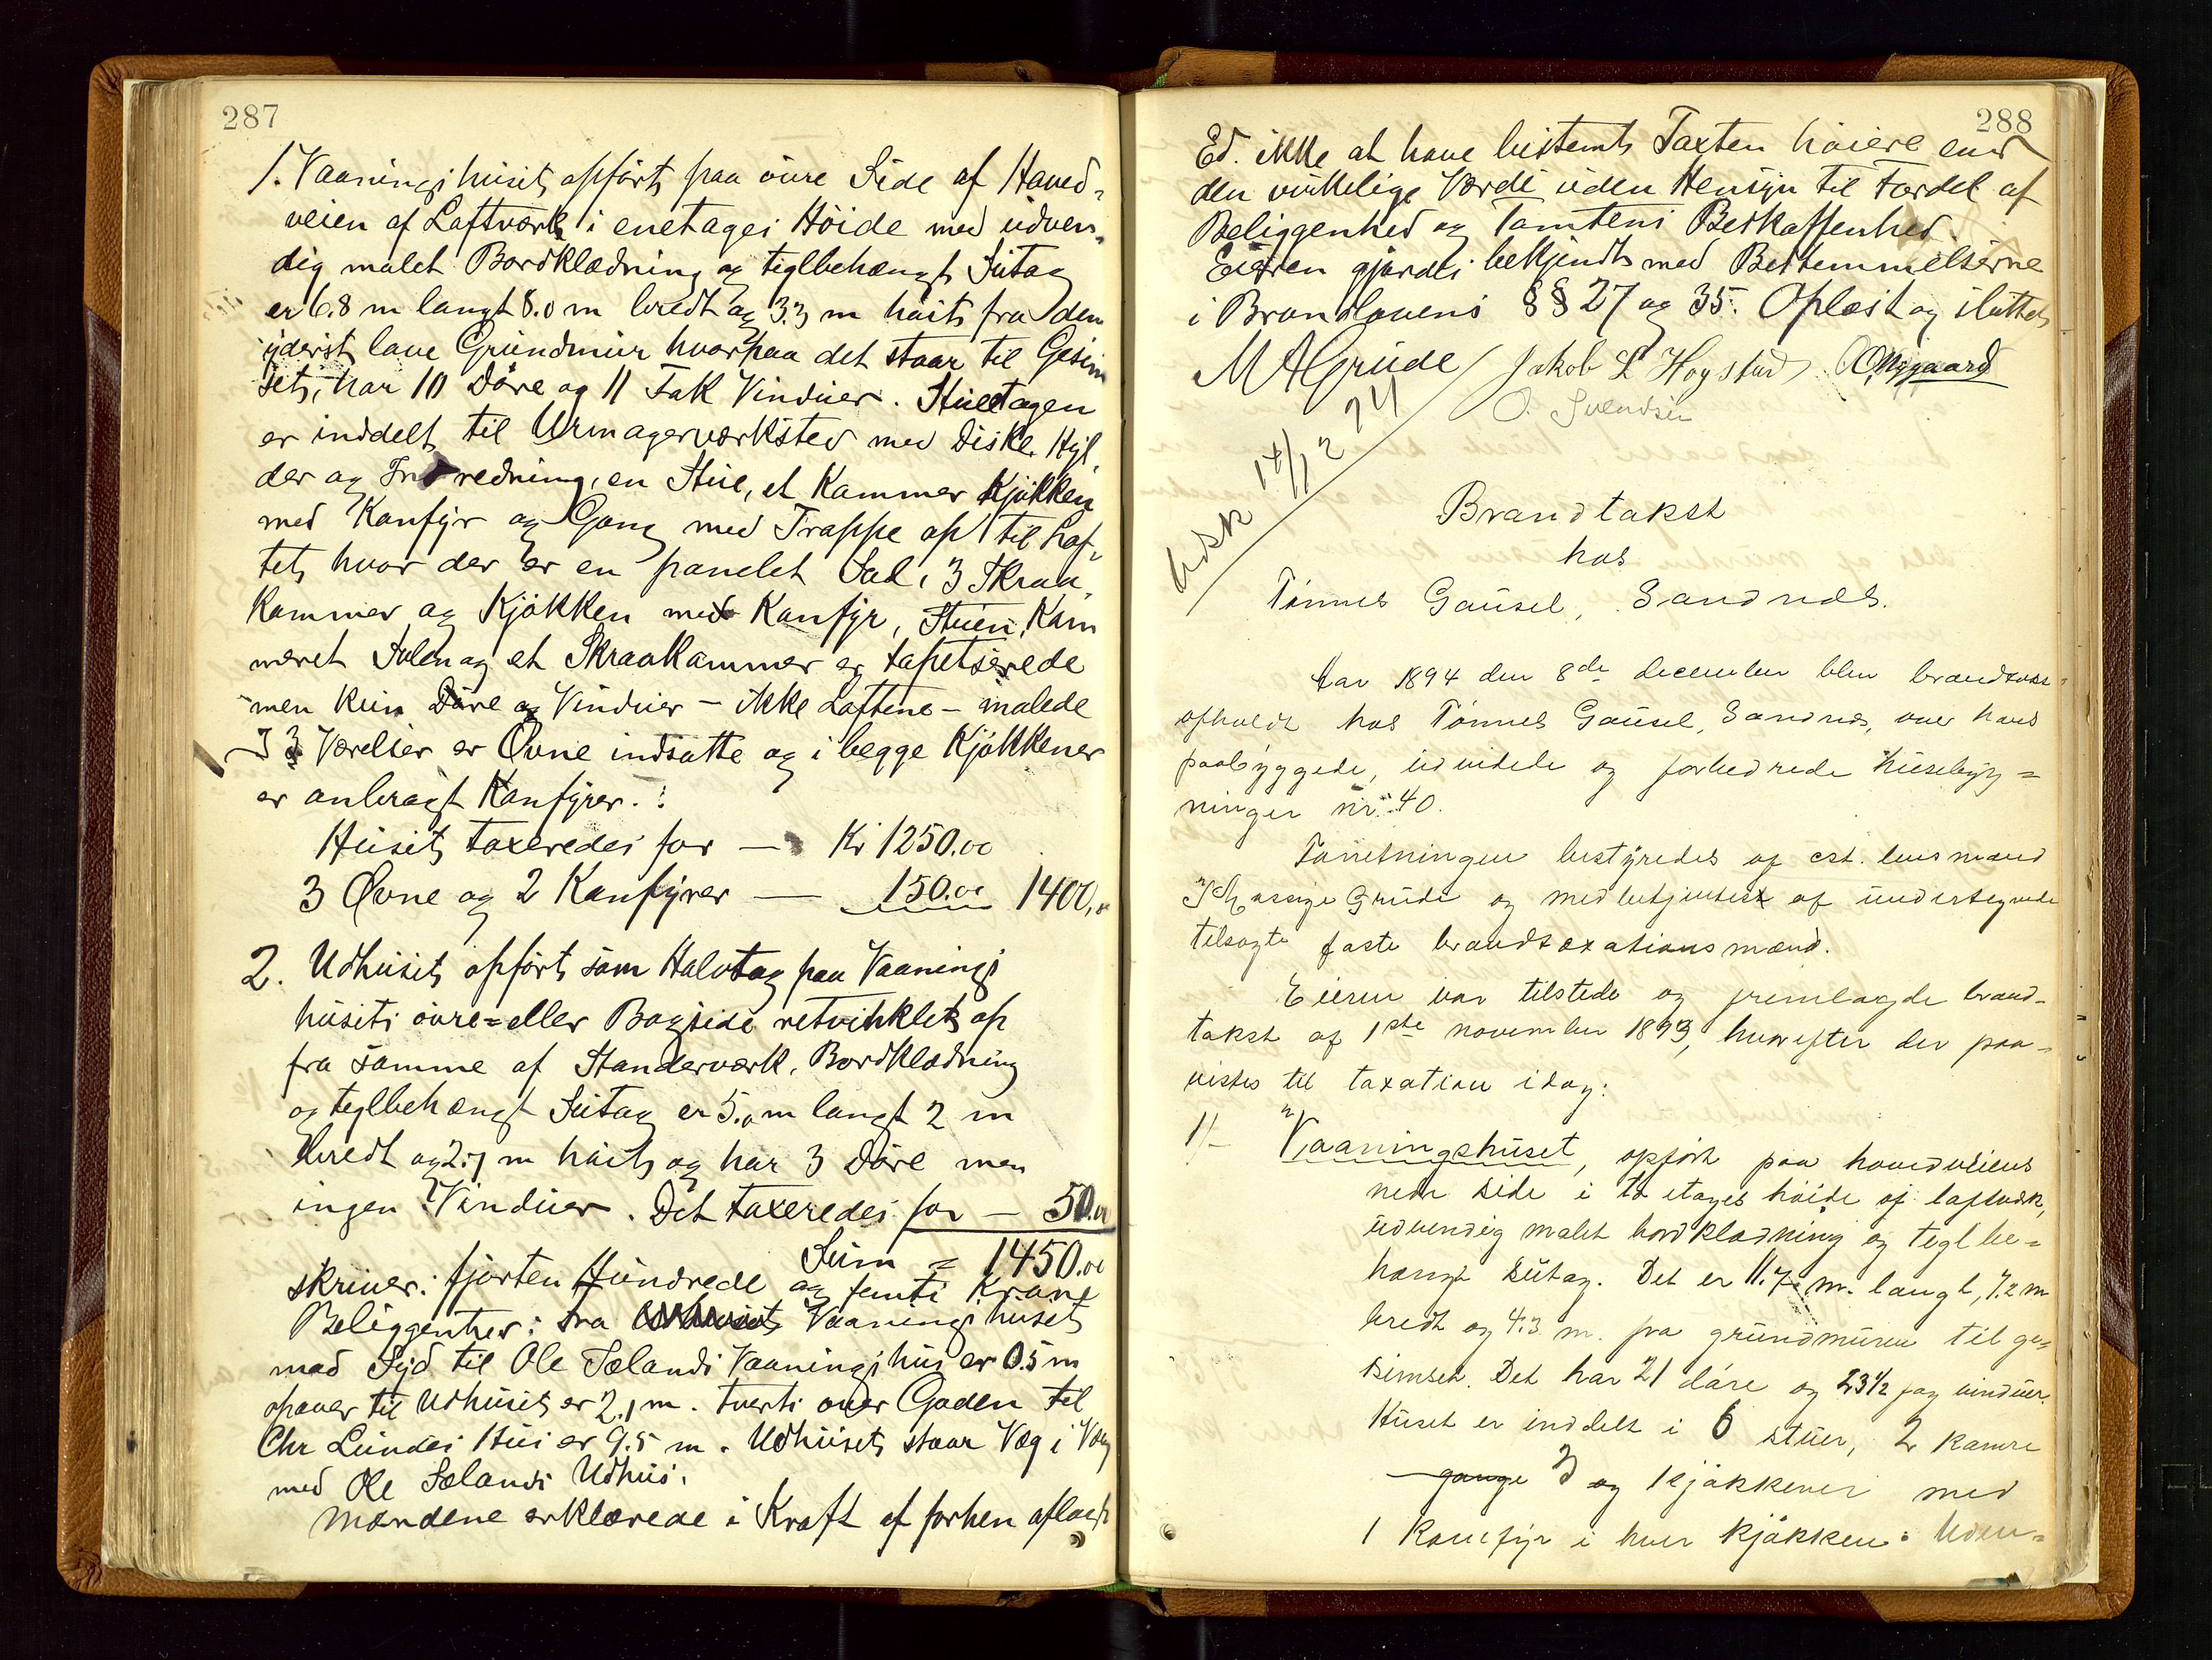 287
1. Vaaningshuset opført paa øvre Side af Hoved-
veien af Laftværk i enetages Høide med udven-
dig malet Bordklædning og teglbehængt Sutag
er 6.8 m langt 8.0 m bredt og 3.3 m høit fra den
yderst lave Grundmur hvorpaa det staar til Gesim
set, har 10 Døre og 11 Fak Vinduer. Stueetagen
er inddelt til Urmagerværksted med Diske, Hyl-
der og Indredning, en Stue, et Kammer Kjøkken
med Komfyr og Gang med Trappe op til Lof-
tet hvor der er en panelet Sal, 3 Skraa-
kammer og Kjøkken med Komfyr, Stuen, Kam
meret Salen og et Skraakammer er tapetserede
men kun Døre og Vinduer - ikke Loftene - malede
I 3 Værelser er Ovne indsatte og i begge Kjøkkener
er anbragt Komfyrer.
Huset taxeredes for — Kr 1250.00
3 Ovne og 2 Komfyrer — 150.00 1400,00
2. Udhuset opført som Halvtag paa Vaanings
husets øvre= eller Bagside retvinklet op
fra samme af Standerværk, Bordklædning
og teglbehængt Sutag er 5.0 m langt 2 m
bredt og 2.7 m høit og har 3 Døre men
ingen Vinduer. Det taxeredes for — 50.00
Sum = 1450.00
skriver: fjorten Hundrede og femti Krone
Beliggenhed: Fra Vaaningshuset
mod Syd til Ole Sælands Vaaningshus er 0.5 m
opover til Udhuset er 2.1 m. tverts over Gaden til
Chr Lundes Hus er 9.5 m. Udhuset staar Væg i Væg
med Ole Sælands Udhus.
Mændene erklærede i Kraft af forhen aflagt
288
Ed. ikke at have bestemt Taxten høiere end
den virkelige Værdi uden Hensyn til Fordel af
Beliggenhed og Tomtens Beskaffenhed.
Eieren gjordes bekjendt med Bestemmelserne
i Brandlovens §§ 27 og 35. Oplæst og sluttet
M A Grude / Jakob L Hogstad
O. Svendsen
Udsk 14/12 94
Brandtakst
hos
Tønnes Gausel, Sandnes.
Aar 1894 den 8de december blev brandtaxt
afholdt hos Tønnes Gausel, Sandnes, over hans
paabyggede, udvidede og forbedrede husebyg=
ninger nr. 40.
Forretningen bestyredes af cst. lensmand
Grude og medbetjentest af undertegnede
tilsagte faste brandtaxationsmænd.
Eieren var tilstede og fremlagde brand-
takst af 1ste november 1893, hvorefter der paa-
vistes til taxation idag:
1/- Vaaningshuset, opført paa hovedveiens
nedr side i to etages høide af laftværk,
udvendig malet bordklædning og teglbe=
hængt sutag. Det er 11.7 m. langt, 7.2 m
bredt og 4.3 m. fra grundmuren til ge=
simset. Det har 21 døre og 23½ fag vinduer.
Huset er inddelt i 6 stuer, 2 kamre
gange 3 og kjøkkener med
1 komfyr i hver kjøkken. Uden-